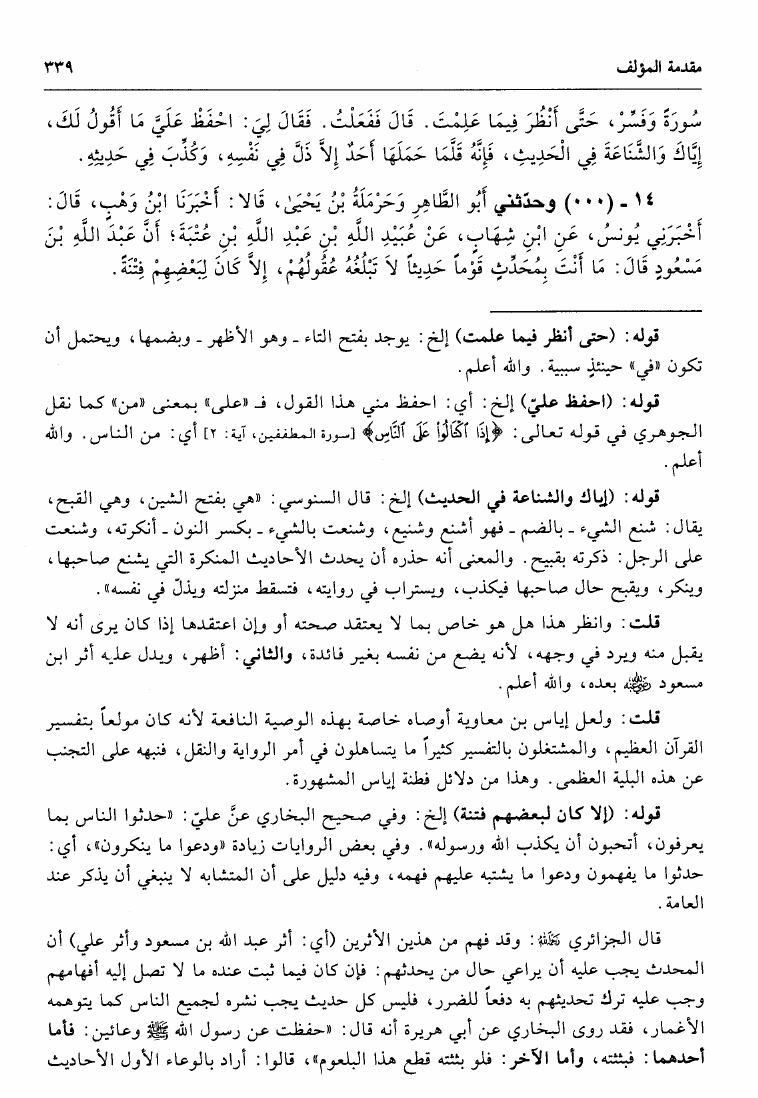 مقدمة المؤلف ٣٣٩
سُورَةً وَفَسِّرْ، حَتَّى أَنْظُرَ فِيمَا عَلِمْتَ. قَالَ فَفَعَلْتُ. فَقَالَ لِيَ: احْفَظْ عَلَيَّ مَا أَقُولُ لَكَ،
إِيَّاكَ وَالشَّنَاعَةَ فِي الْحَدِيثِ، فَإِنَّهُ قَلَّمَا حَمَلَهَا أَحَدٌ إِلاَّ ذَلَّ فِي نَفْسِهِ، وَكُذِّبَ فِي حَدِيثِهِ.
١٤ ـ (٠٠٠) وحدّثني أَبُو الطَّاهِرِ وَحَرْمَلَةُ بْنُ يَحْيَىٰ، قَالا: أَخْبَرَنَا ابْنُ وَهْبٍ، قَالَ:
أَخْبَرَنِي يُونسُ، عَنِ ابْنِ شِهَابٍ، عَنْ عُبَيْدِ اللَّهِ بْنِ عَبْدِ اللَّهِ بْنِ عُتْبَةَ؛ أَنَّ عَبْدَ اللَّهِ بْنَ
مَسْعُودٍ قَالَ: مَا أَنْتَ بِمُحَدِّثٍ قَوْماً حَدِيثاً لاَ تَبْلُغُهُ عُقُولُهُمْ، إِلاَّ كَانَ لِبَعْضِهِمْ فِتْنَةً.
قوله: (حتى أنظر فيما علمت) إلخ: يوجد بفتح التاء ـ وهو الأظهر ـ وبضمها، ويحتمل أن
تكون «في» حينئذٍ سببية. والله أعلم.
قوله: (احفظ عليّ) إلخ: أي: احفظ مني هذا القول، فـ «على» بمعنى «من» كما نقل
الجوهري في قوله تعالى: ﴿إِذَا ٱكْتَالُوا۟ عَلَى ٱلنَّاسِ﴾ [سورة المطففين، آية: ٢] أي: من الناس. والله
أعلم.
قوله: (إياك والشناعة في الحديث) إلخ: قال السنوسي: «هي بفتح الشين، وهي القبح،
يقال: شنع الشيء ـ بالضم ـ فهو أشنع وشنيع، وشنعت بالشيء ـ بكسر النون ـ أنكرته، وشنعت
على الرجل: ذكرته بقبيح. والمعنى أنه حذره أن يحدث الأحاديث المنكرة التي يشنع صاحبها،
وينكر، ويقبح حال صاحبها فيكذب، ويستراب في روايته، فتسقط منزلته ويذلّ في نفسه».
قلت: وانظر هذا هل هو خاص بما لا يعتقد صحته أو وإن اعتقدها إذا كان يرى أنه لا
يقبل منه ويرد في وجهه، لأنه يضع من نفسه بغير فائدة، والثاني: أظهر، ويدل عليه أثر ابن
مسعود رضي الله عنه بعده، والله أعلم.
قلت: ولعل إياس بن معاوية أوصاه خاصة بهذه الوصية النافعة لأنه كان مولعاً بتفسير
القرآن العظيم، والمشتغلون بالتفسير كثيراً ما يتساهلون في أمر الرواية والنقل، فنبهه على التجنب
عن هذه البلية العظمى. وهذا من دلائل فطنة إياس المشهورة.
قوله: (إلا كان لبعضهم فتنة) إلخ: وفي صحيح البخاري عنَّ عليّ: «حدثوا الناس بما
يعرفون، أتحبون أن يكذب الله ورسوله». وفي بعض الروايات زيادة «ودعوا ما ينكرون»، أي:
حدثوا ما يفهمون ودعوا ما يشتبه عليهم فهمه، وفيه دليل على أن المتشابه لا ينبغي أن يذكر عند
العامة.
قال الجزائري رحمه الله: وقد فهم من هذين الأثرين (أي: أثر عبد الله بن مسعود وأثر علي) أن
المحدث يجب عليه أن يراعي حال من يحدثهم: فإن كان فيما ثبت عنده ما لا تصل إليه أفهامهم
وجب عليه ترك تحديثهم به دفعاً للضرر، فليس كل حديث يجب نشره لجميع الناس كما يتوهمه
الأغمار، فقد روى البخاري عن أبي هريرة أنه قال: «حفظت عن رسول الله ﷺ وعائين: فأما
أحدهما: فبثثته، وأما الآخر: فلو بثثته قطع هذا البلعوم»، قالوا: أراد بالوعاء الأول الأحاديث